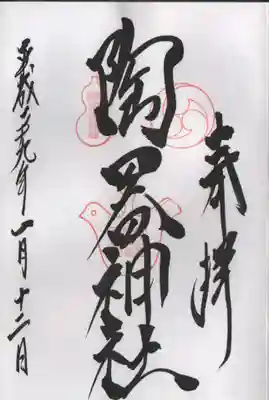 奉拝
陶器神社
平成二九年一月十二日